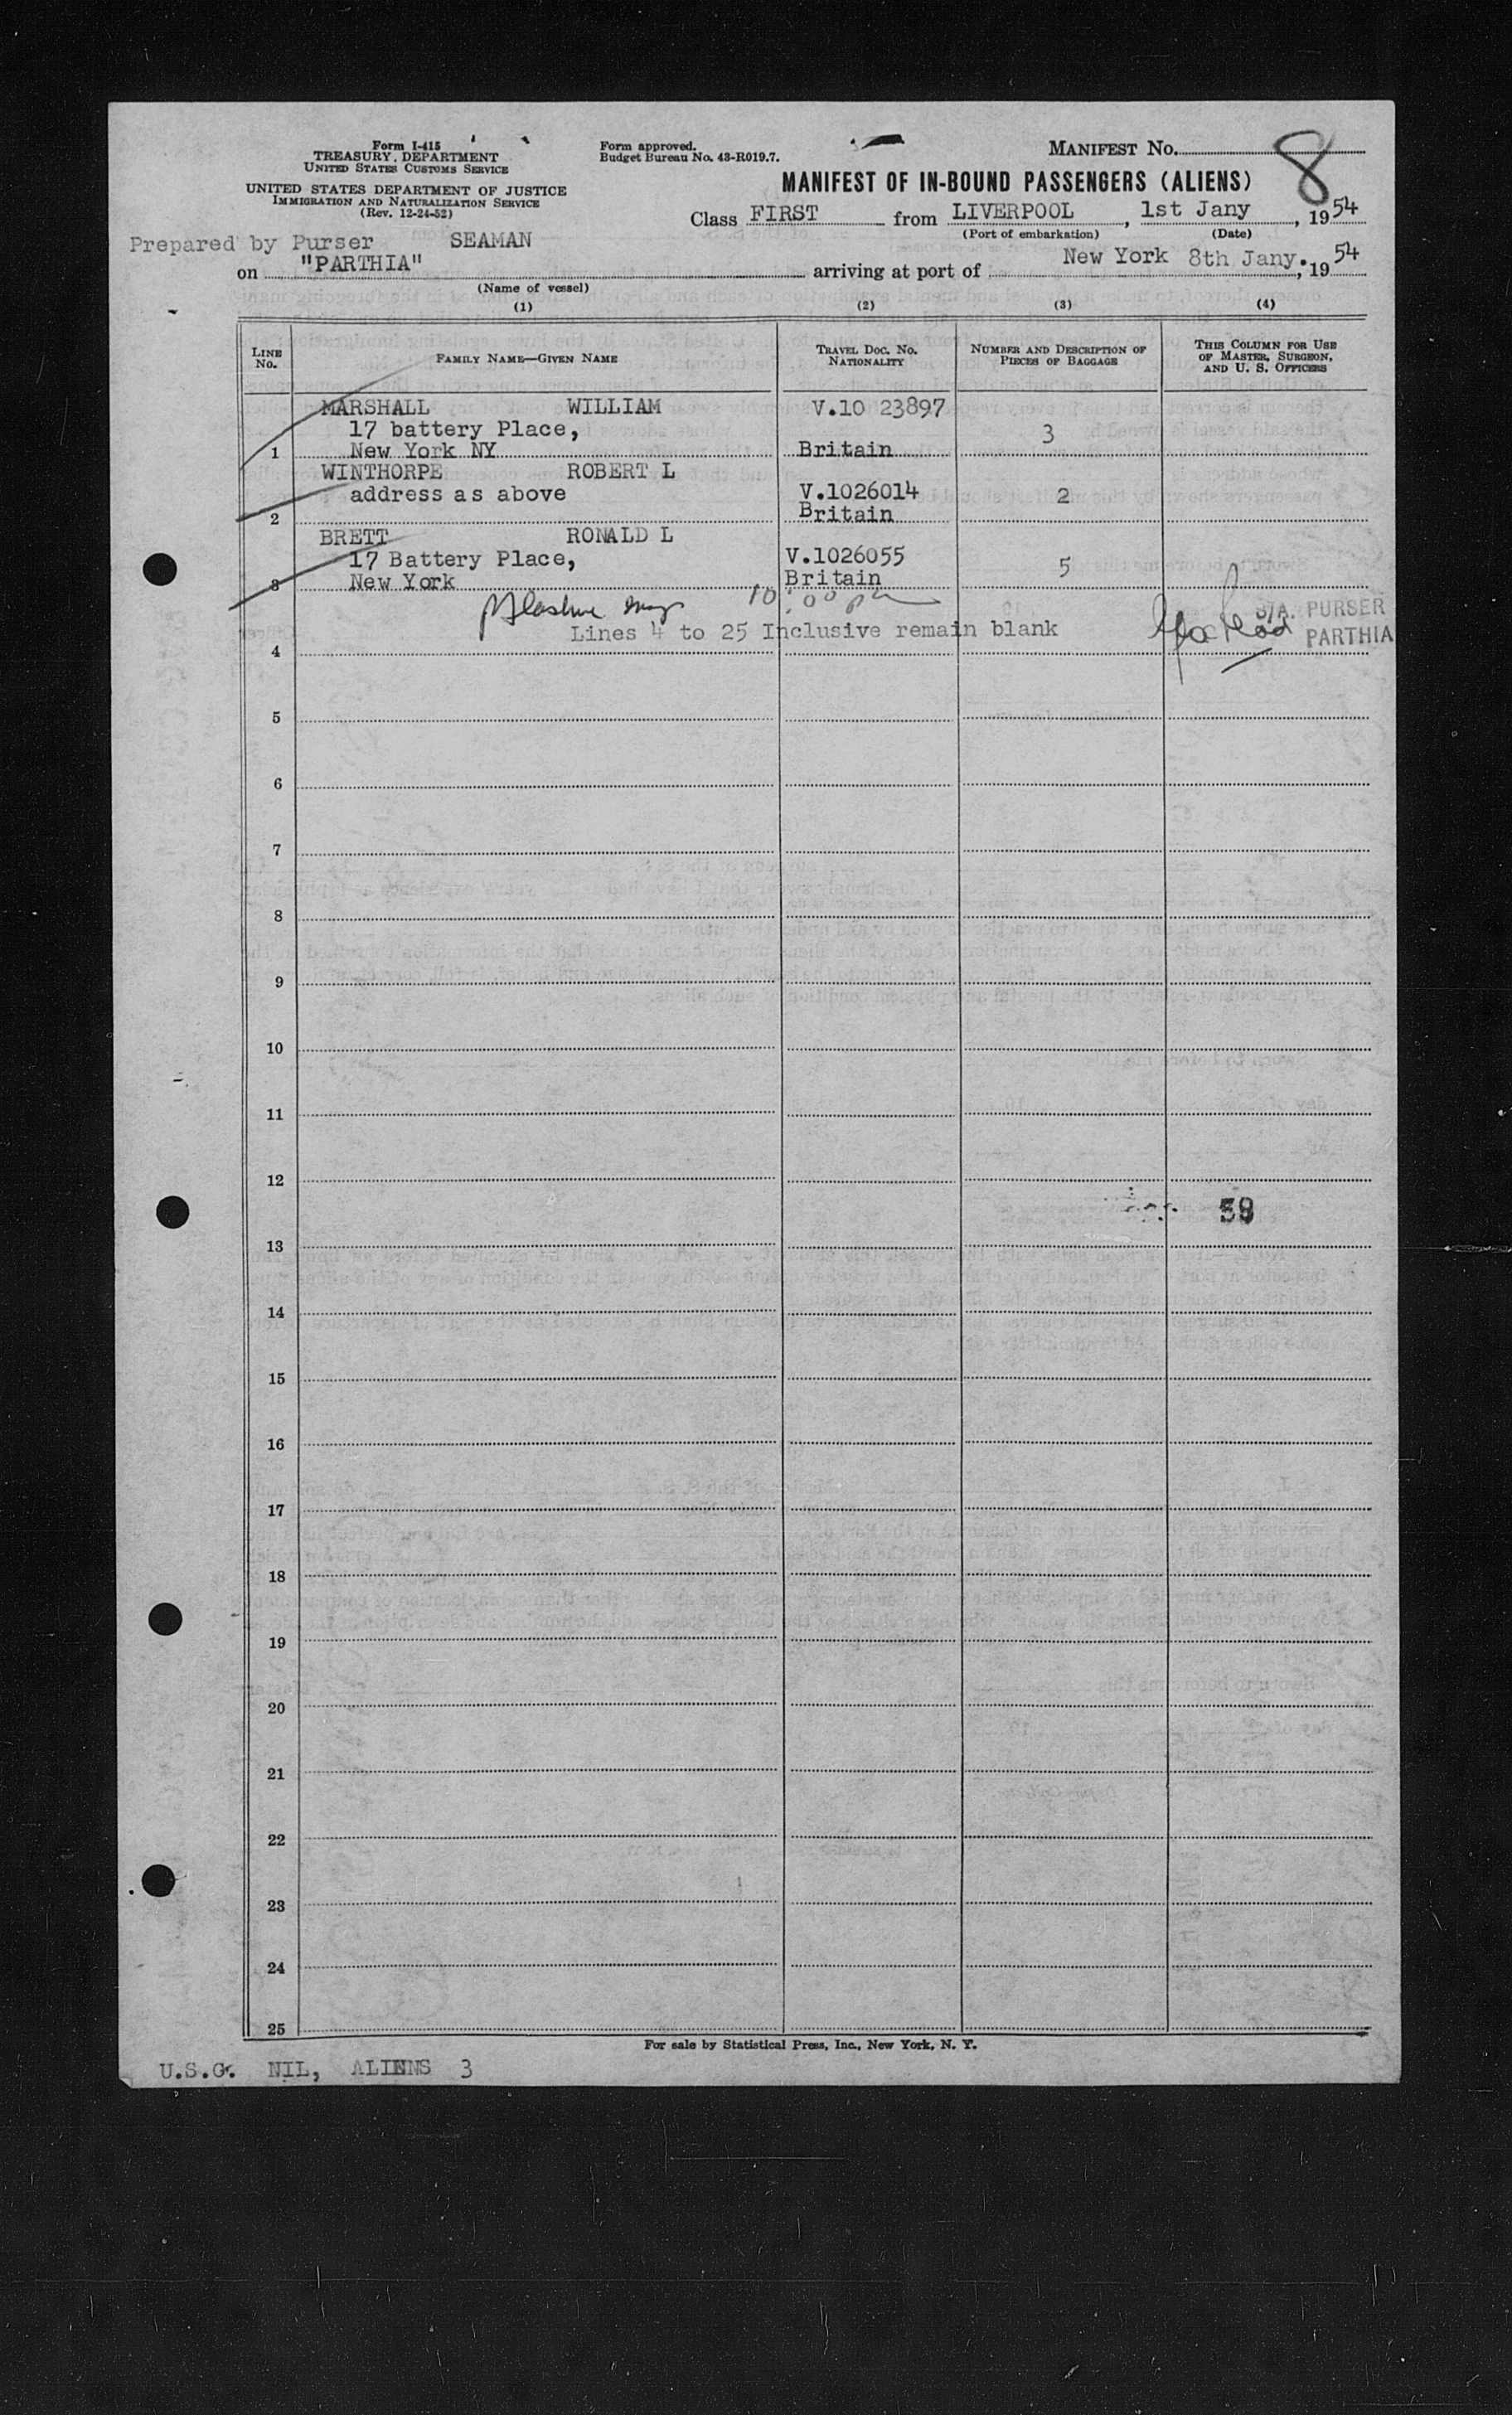 Form I-415
TREASURY DEPARTMENT
UNITED STATES CUSTOMS SERVICE
UNITED STATES DEPARTMENT OF JUSTICE
IMMIGRATION AND NATURALIZATION SERVICE
(Rev. 12-24-52)
Form approved.
Budget Bureau No. 43-R019.7.
MANIFEST NO. 8
MANIFEST OF IN-BOUND PASSENGERS (ALIENS)
Class FIRST from LIVERPOOL, 1st Jany, 1954
(Port of embarkation) (Date)
Prepared by Purser SEAMAN
on "PARTHIA" arriving at port of New York 8th Jany., 1954
(Name of vessel)
(1) (2) (3) (4)
LINE NO. FAMILY NAME—GIVEN NAME TRAVEL DOC. NO. NATIONALITY NUMBER AND DESCRIPTION OF PIECES OF BAGGAGE THIS COLUMN FOR USE OF MASTER, SURGEON, AND U. S. OFFICERS
MARSHALL WILLIAM V.10 23897
17 battery Place, 3
1 New York NY Britain
WINTHORPE ROBERT L
address as above V.1026014 2
2 Britain
BRETT RONALD L
17 Battery Place, V.1026055 5
3 New York Britain
10:00 pm
Lines 4 to 25 Inclusive remain blank
S/A. PURSER
PARTHIA
4
5
6
7
8
9
10
11
12
13
14
15
16
17
18
19
20
21
22
23
24
25
For sale by Statistical Press, Inc., New York, N. Y.
U.S.C. NIL, ALIENS 3